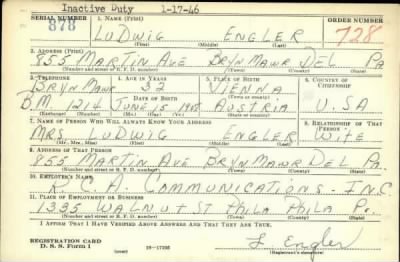 Inactive Duty 1-17-46
SERIAL NUMBER 1. NAME (Print) ORDER NUMBER
878 LUDWIG ENGLER 728
(First) (Middle) (Last)
2. ADDRESS (Print)
855 MARTIN AVE BRYN MAWR DEL PA
(Number and street or R. F. D. number) (Town) (County) (State)
3. TELEPHONE 4. AGE IN YEARS 5. PLACE OF BIRTH 6. COUNTRY OF CITIZENSHIP
BRYN MAWR 32 VIENNA
DATE OF BIRTH
B.M. 1214 JUNE 15 AUSTRIA U.S.A
(Exchange) (Number) (Mo.) (Day) (Yr.) (State or county)
7. NAME OF PERSON WHO WILL ALWAYS KNOW YOUR ADDRESS 8. RELATIONSHIP OF THAT PERSON
MRS LUDWIG ENGLER WIFE
(Mr., Mrs., Miss) (First) (Middle) (Last)
9. ADDRESS OF THAT PERSON
855 MARTIN AVE BRYN MAWR DEL Pa.
(Number and street or R. F. D. number) (Town) (County) (State)
10. EMPLOYER'S NAME
R.C.A. COMMUNICATIONS - INC
11. PLACE OF EMPLOYMENT OR BUSINESS
1335 WALNUT ST PHILA PHILA Pa.
(Number and street or R. F. D. number) (Town) (County) (State)
I AFFIRM THAT I HAVE VERIFIED ABOVE ANSWERS AND THAT THEY ARE TRUE.
REGISTRATION CARD
D. S. S. Form 1 (over) 16-17105 L. Engler
(Registrant's signature)